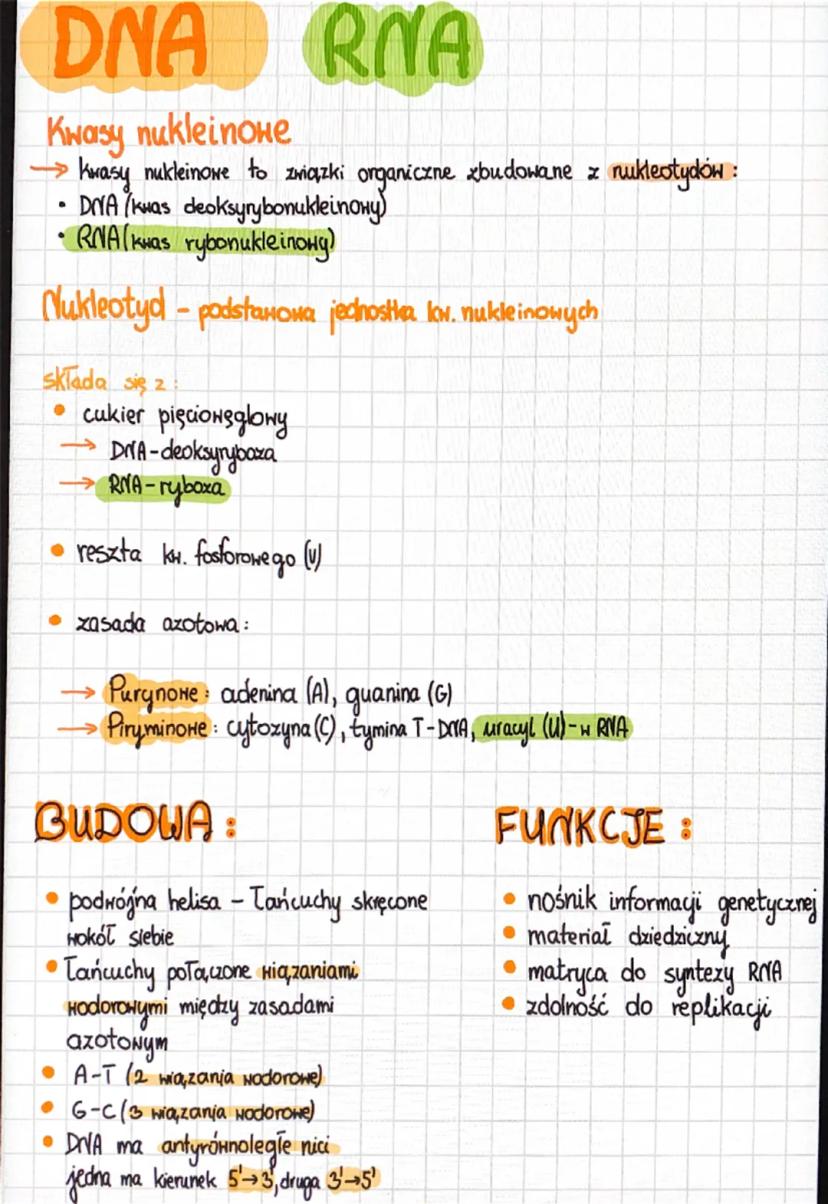 DNA RNA
Kwasy nukleinowe
→ kwasy nukleinowe to związki organiczne zbudowane z nukleotydów:
• DNA (kwas deoksyrybonukleinowy)
• RNA (kwas rybonukleinowy)
Nukleotyd – podstawowa jednostka kw. nukleinowych
składa się z:
• cukier pięciowęglowy
→ DNA-deoksyryboza
→ RNA-ryboza
• reszta kw. fosforowego (V)
• zasada azotowa:
→ Purynowe: adenina (A), guanina (G)
→ Piryminowe: cytozyna (C), tymina T-DNA, uracyl (U)-w RNA
BUDOWA:
• podwójna helisa – łańcuchy skręcone
wokół siebie
• łańcuchy połączone wiązaniami
wodorowymi między zasadami
azotowym
• A-T (2 wiązania wodorowe)
• G-C (3 wiązania wodorowe)
• DNA ma antyrównoległe nici
jedna ma kierunek 5'→3', druga 3'→5'
FUNKCJE:
• nośnik informacji genetycznej
• materiał dziedziczny
• matryca do syntezy RNA
• zdolność do replikacji